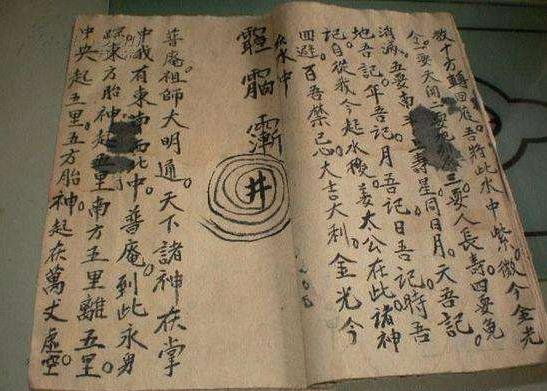 放十方轉回居。吾將此水中紫微。今金光
令。一要天開二要
三要人長壽四要免
消滅。五要南
壽星同日月。天吾記
地吾記。年吾記月吾記日吾記。時吾
記自從我今起水後姜太公在此諸神
回避。百吾禁忌大吉大利。金光今
水中
井
普庵祖師大明通。天下諸神在掌
中我有東南西北中。普庵到此永男
東方胎神起五里南方五里離五里
中央起五里五方胎神。起在萬丈虛空。